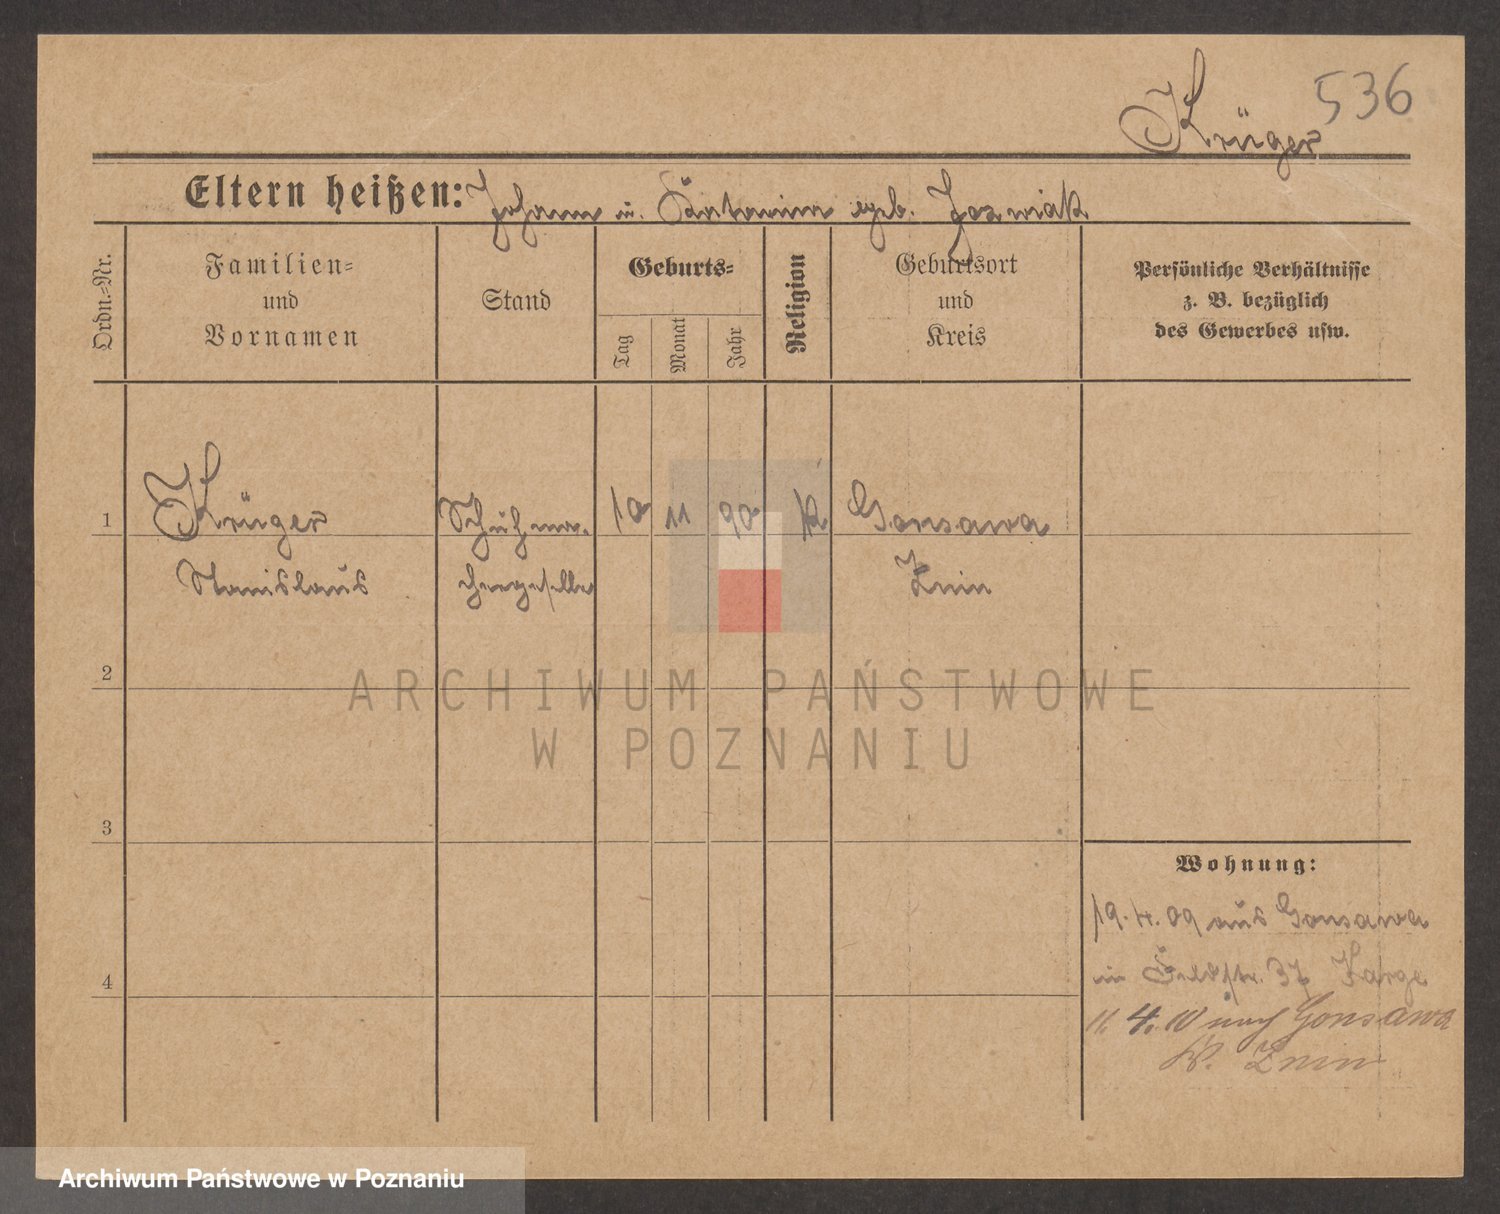 536
Krüger
Eltern heißen: Johann u. geb. Jozwiak
Ordn.=Nr.
Familien=
und
Vornamen
Stand
Geburts=
Tag
Monat
Jahr
Religion
Geburtsort
und
Kreis
Persönliche Verhältnisse
z. B. bezüglich
des Gewerbes usw.
1
Krüger
Stanislaus
Schuhma-
chergeselle
10
11
90
k
Gonsawa
Znin
2
3
4
Wohnung:
19.4.09 aus Gonsawa
in Feldstr. 37 Karge
11.4.10 nach Gonsawa
Kr. Znin
ARCHIWUM PAŃSTWOWE
W POZNANIU
Archiwum Państwowe w Poznaniu